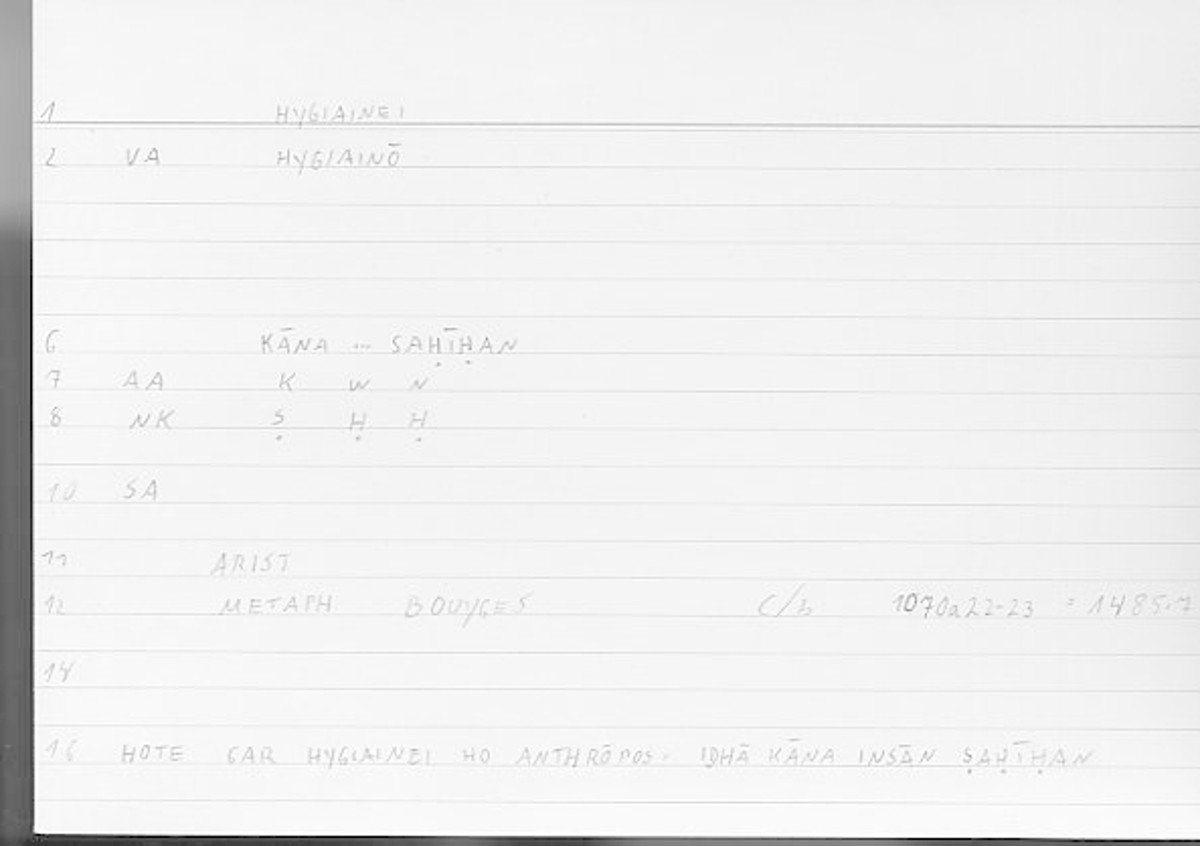 1 HYGIAINEI
2 VA HYGIAINŌ
6 KĀNA ... SAḤĪḤAN
7 AA K W N
8 NK Ṣ Ḥ Ḥ
10 SA
11 ARIST
12 METAPH BOUYGES C/b 1070a22-23 = 1485.7
14
16 HOTE GAR HYGIAINEI HO ANTHRŌPOS · IDHĀ KĀNA INSĀN ṢAḤĪḤAN